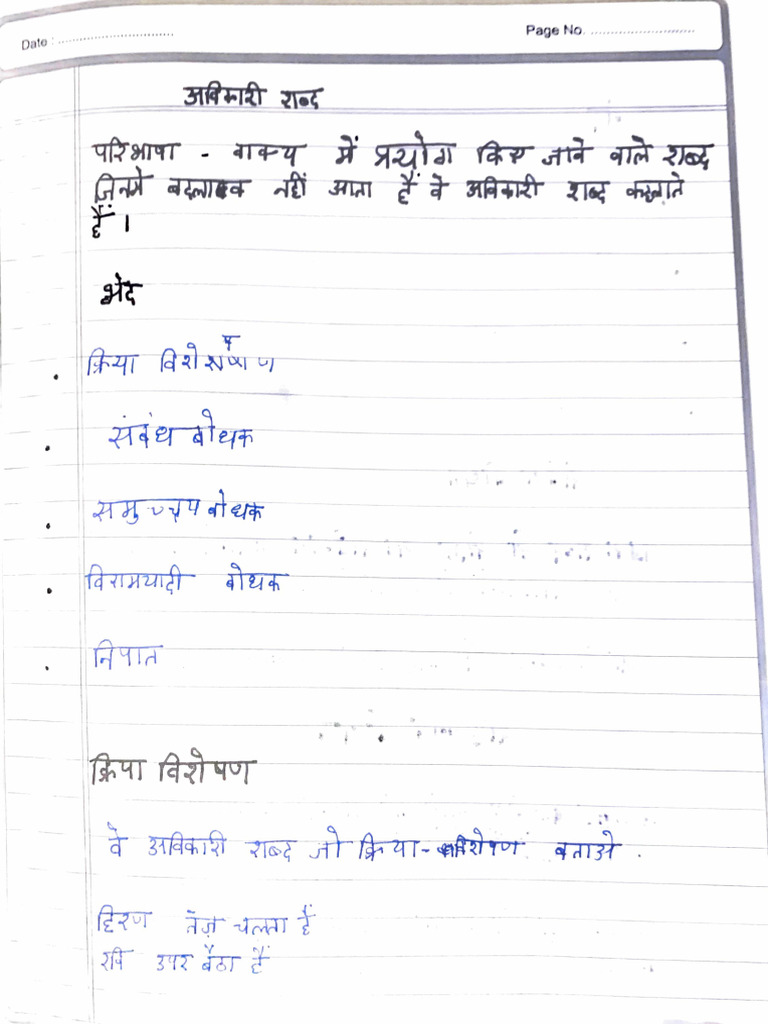 Date : ..............................
Page No. ..............................
अविकारी शब्द
परिभाषा - वाक्य में प्रयोग किए जाने वाले शब्द
जिनमे बदलाव नहीं आता हैं वे अविकारी शब्द कहलाते
हैं ।
भेद
• क्रिया विशेषण
• संबंध बोधक
• समुच्चय बोधक
• विरामयादी बोधक
• निपात
क्रिया विशेषण
वे अविकारी शब्द जो क्रिया-विशेषण बताओ .
हिरण तेज़ चलता हैं
रवि उपर बैठा हैं